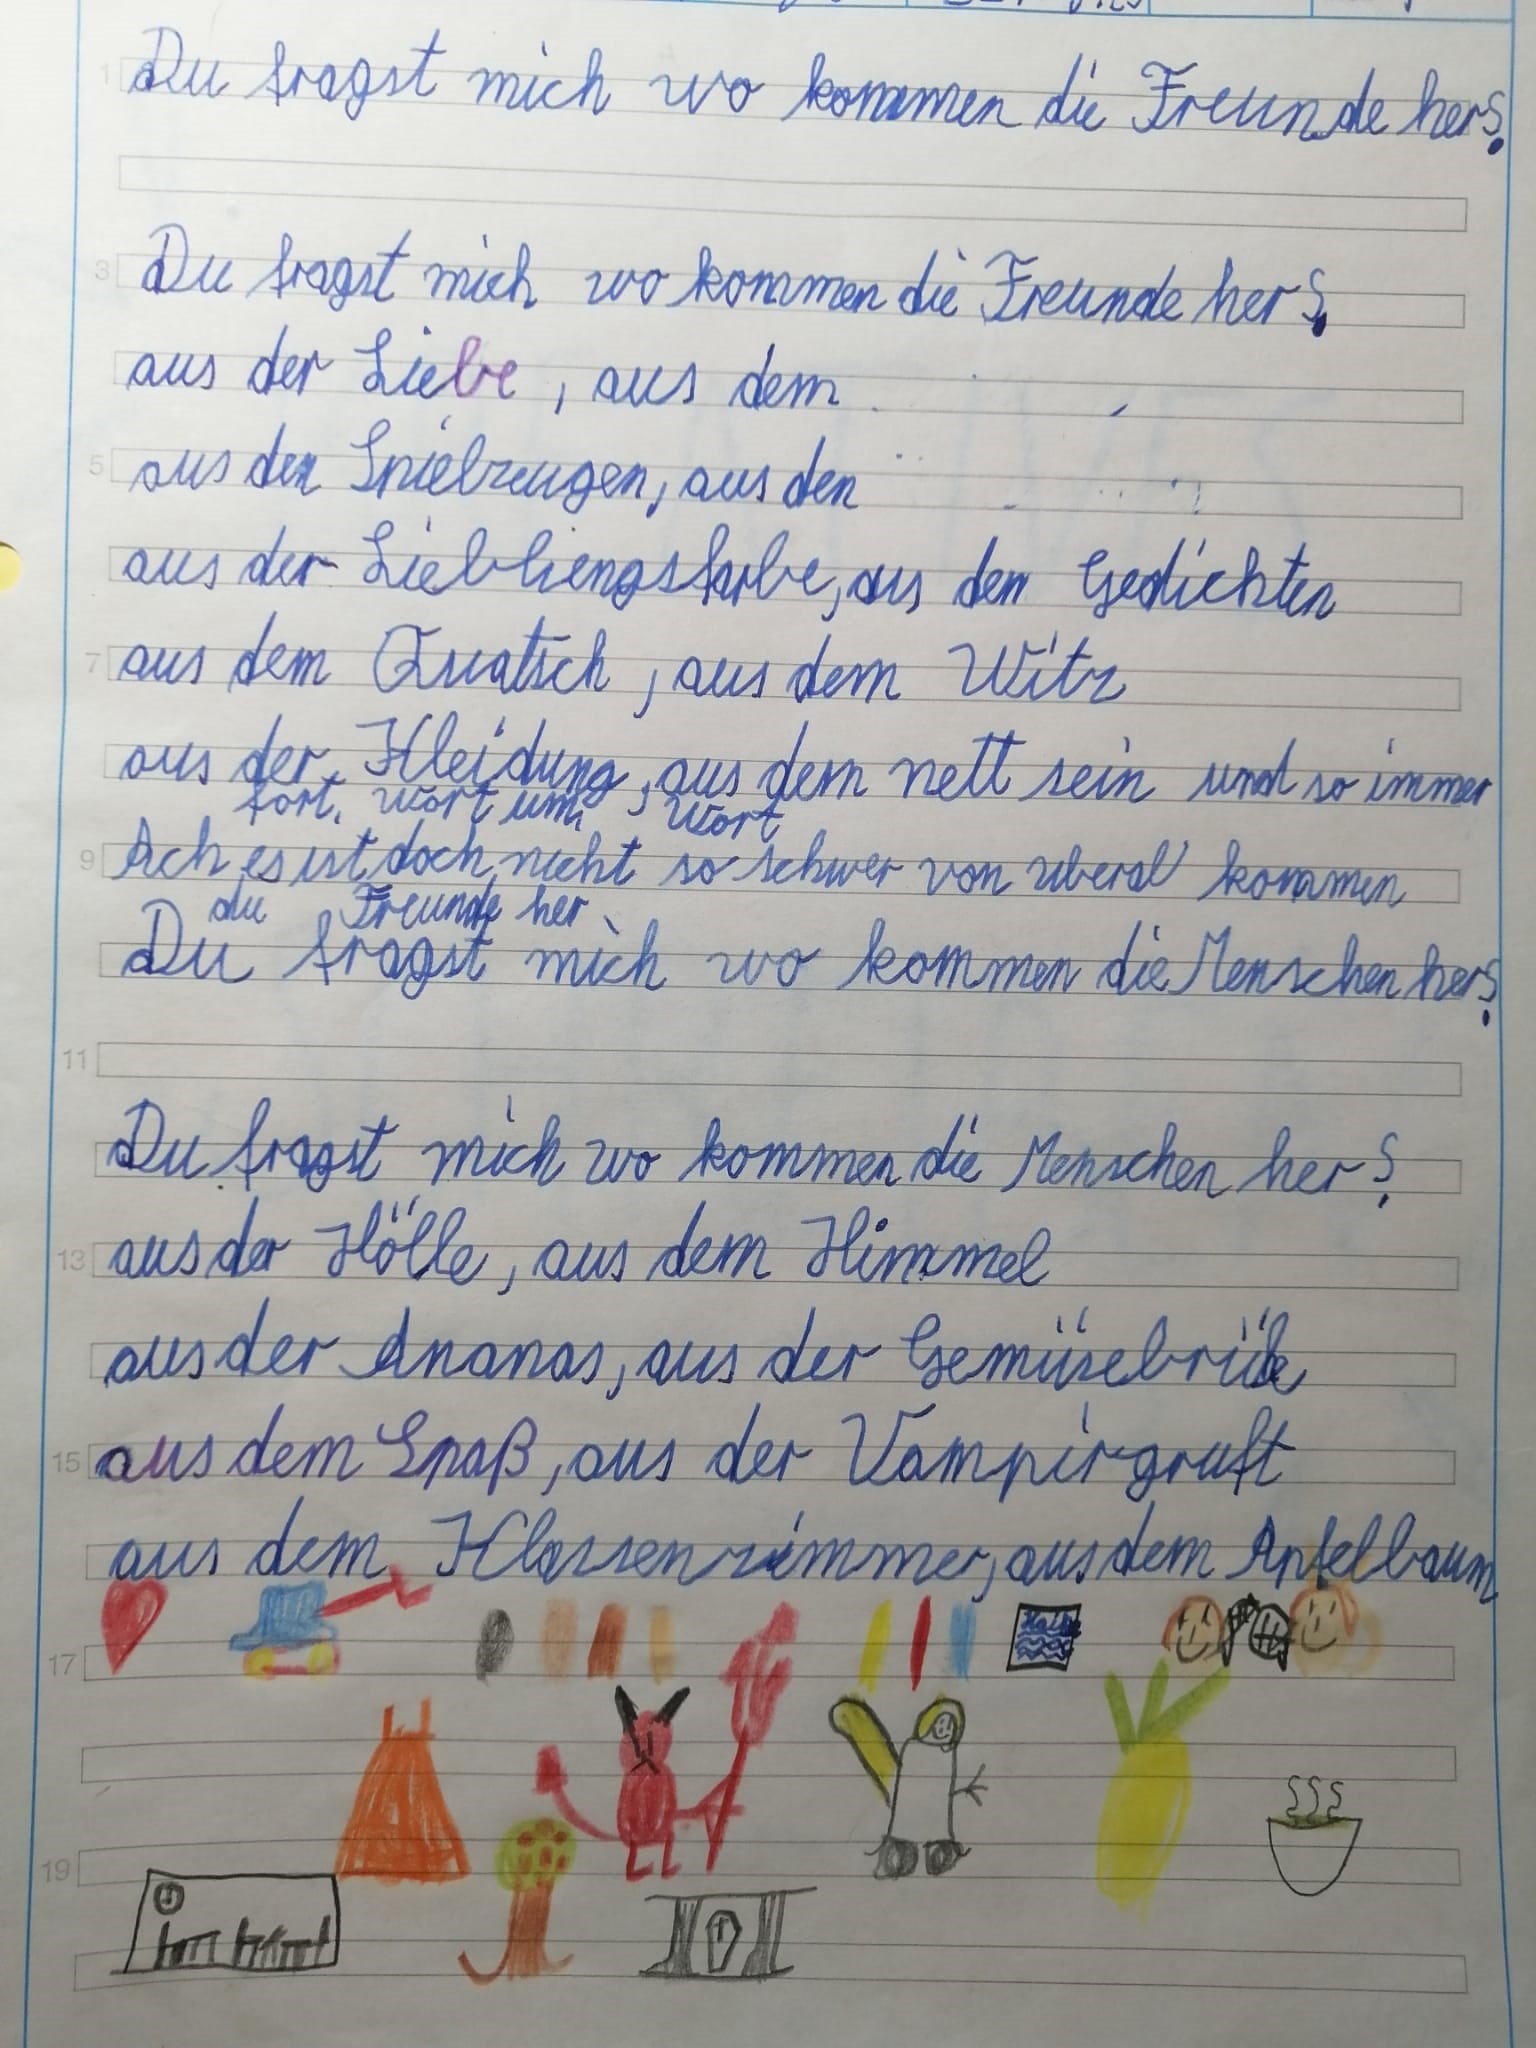 Du fragst mich wo kommen die Freunde her?
Du fragst mich wo kommen die Freunde her?
aus der Liebe, aus dem
aus den Spielzeugen, aus den
aus der Liebliengsfarbe, aus den Gedichten
aus dem Quatsch, aus dem Witz
aus der Kleidung, aus dem nett sein und so immer
fort, Wort um Wort
Ach es ist doch nicht so schwer von uberal kommen
die Freunde her
Du fragst mich wo kommen die Menschen her?
Du fragst mich wo kommen die Menschen her?
aus der Hölle, aus dem Himmel
aus der Ananas, aus der Gemüsebrüe
aus dem Spaß, aus der Vampirgruft
aus dem Klassenzimmer, aus dem Apfelbaum